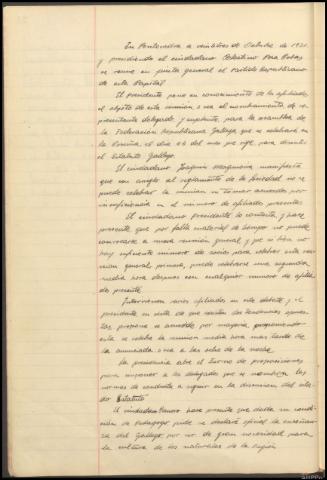 En Pontevedra a veintitres de Octubre de 1931
y presidiendo el ciudadano Celestino Poza Pastrana
se reune en junta general el Partido Republicano
de esta Capital.
El presidente pone en conocimiento de los afiliados
el objeto de esta reunion o sea el nombramiento de re-
presentante delegado y suplente, para la asamblea de
la Federación Republicana Gallega que se celebrará en
La Coruña el dia 25 del mes que rige para discutir
el Estatuto Gallego.
El ciudadano Joaquin manifiesta
que con arreglo al reglamento de la Sociedad no se
puede celebrar la reunion ni tomar acuerdos por
insuficiencia en el número de afiliados presentes.
El ciudadano presidente le contesta y hace
presente que por falta material de tiempo no puede
convocarse a nueva reunión general y que si bien no
hay suficiente número de socios para celebrar esta reu-
nion general primera, puede celebrarse una segunda
media hora despues con cualquier número de afilia-
dos presente.
Intervienen varios afiliados en este debate y el
presidente en vista de que existen dos tendencias opues-
tas propone se acuerde por mayoria,
esta se celebre la reunion media hora mas tarde de
la anunciada o sea a las ocho de la noche.
La presidencia abre el turno de proposiciones
para imponer a los delegados que se nombren las
normas de conducta a seguir en la discusion del cita-
do Estatuto
El ciudadano hace presente que dada su condi-
ción de pedagogo pide se declare oficial la enseñan-
za del Gallego por ser de gran necesidad para
la cultura de los naturales de la región